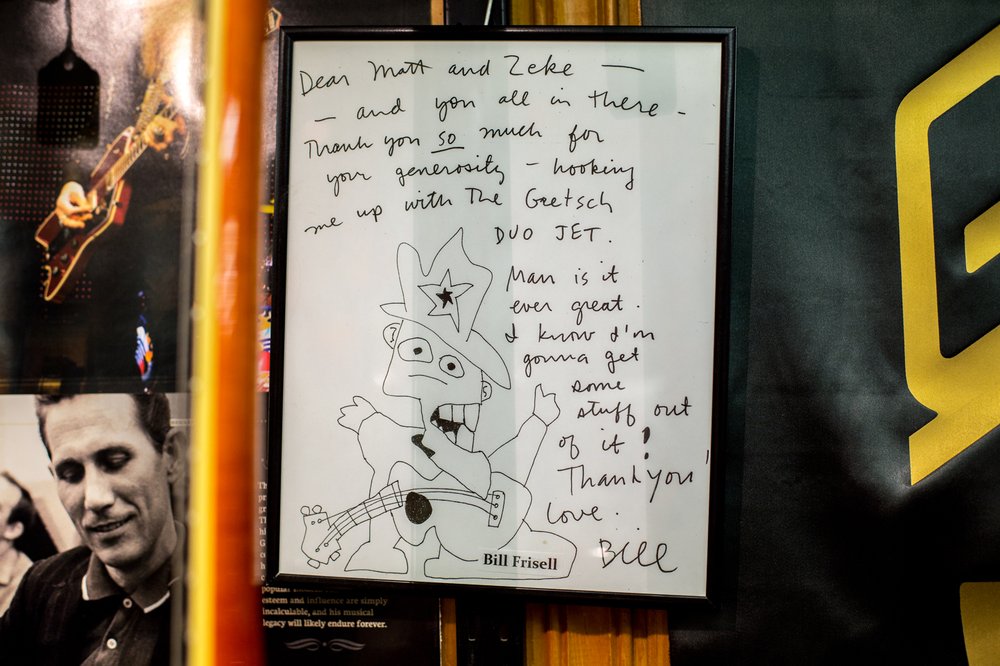 Dear Matt and Zeke —
— and you all in there -
Thank you so much for
your generosity - hooking
me up with the Gretsch
DUO JET.
Man is it
ever great.
I know I'm
gonna get
some
stuff out
of it!
Thank you!
Love.
Bill
Bill Frisell
esteem and influence are simply
incalculable, and his musical
legacy will likely endure forever.